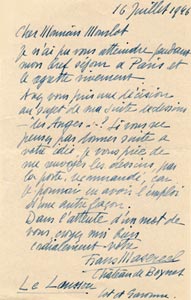 16 Juillet 1946
Cher Monsieur
Je n'ai pu vous attendre pendant
mon bref séjour à Paris et
le regrette vivement.
Avez vous pris une décision
au sujet de ma suite de dessins
"les Anges"..? Si vous ne
pensez pas donner suite à
votre idée je vous prie de
me renvoyer les dessins par
la poste, recommandé, car
je pourrais en avoir l'emploi
d'une autre façon.
Dans l'attente d'un mot de
vous, croyez moi bien
cordialement votre
Frans Masereel
Château de Boynet
Le Laussou
Lot et Garonne